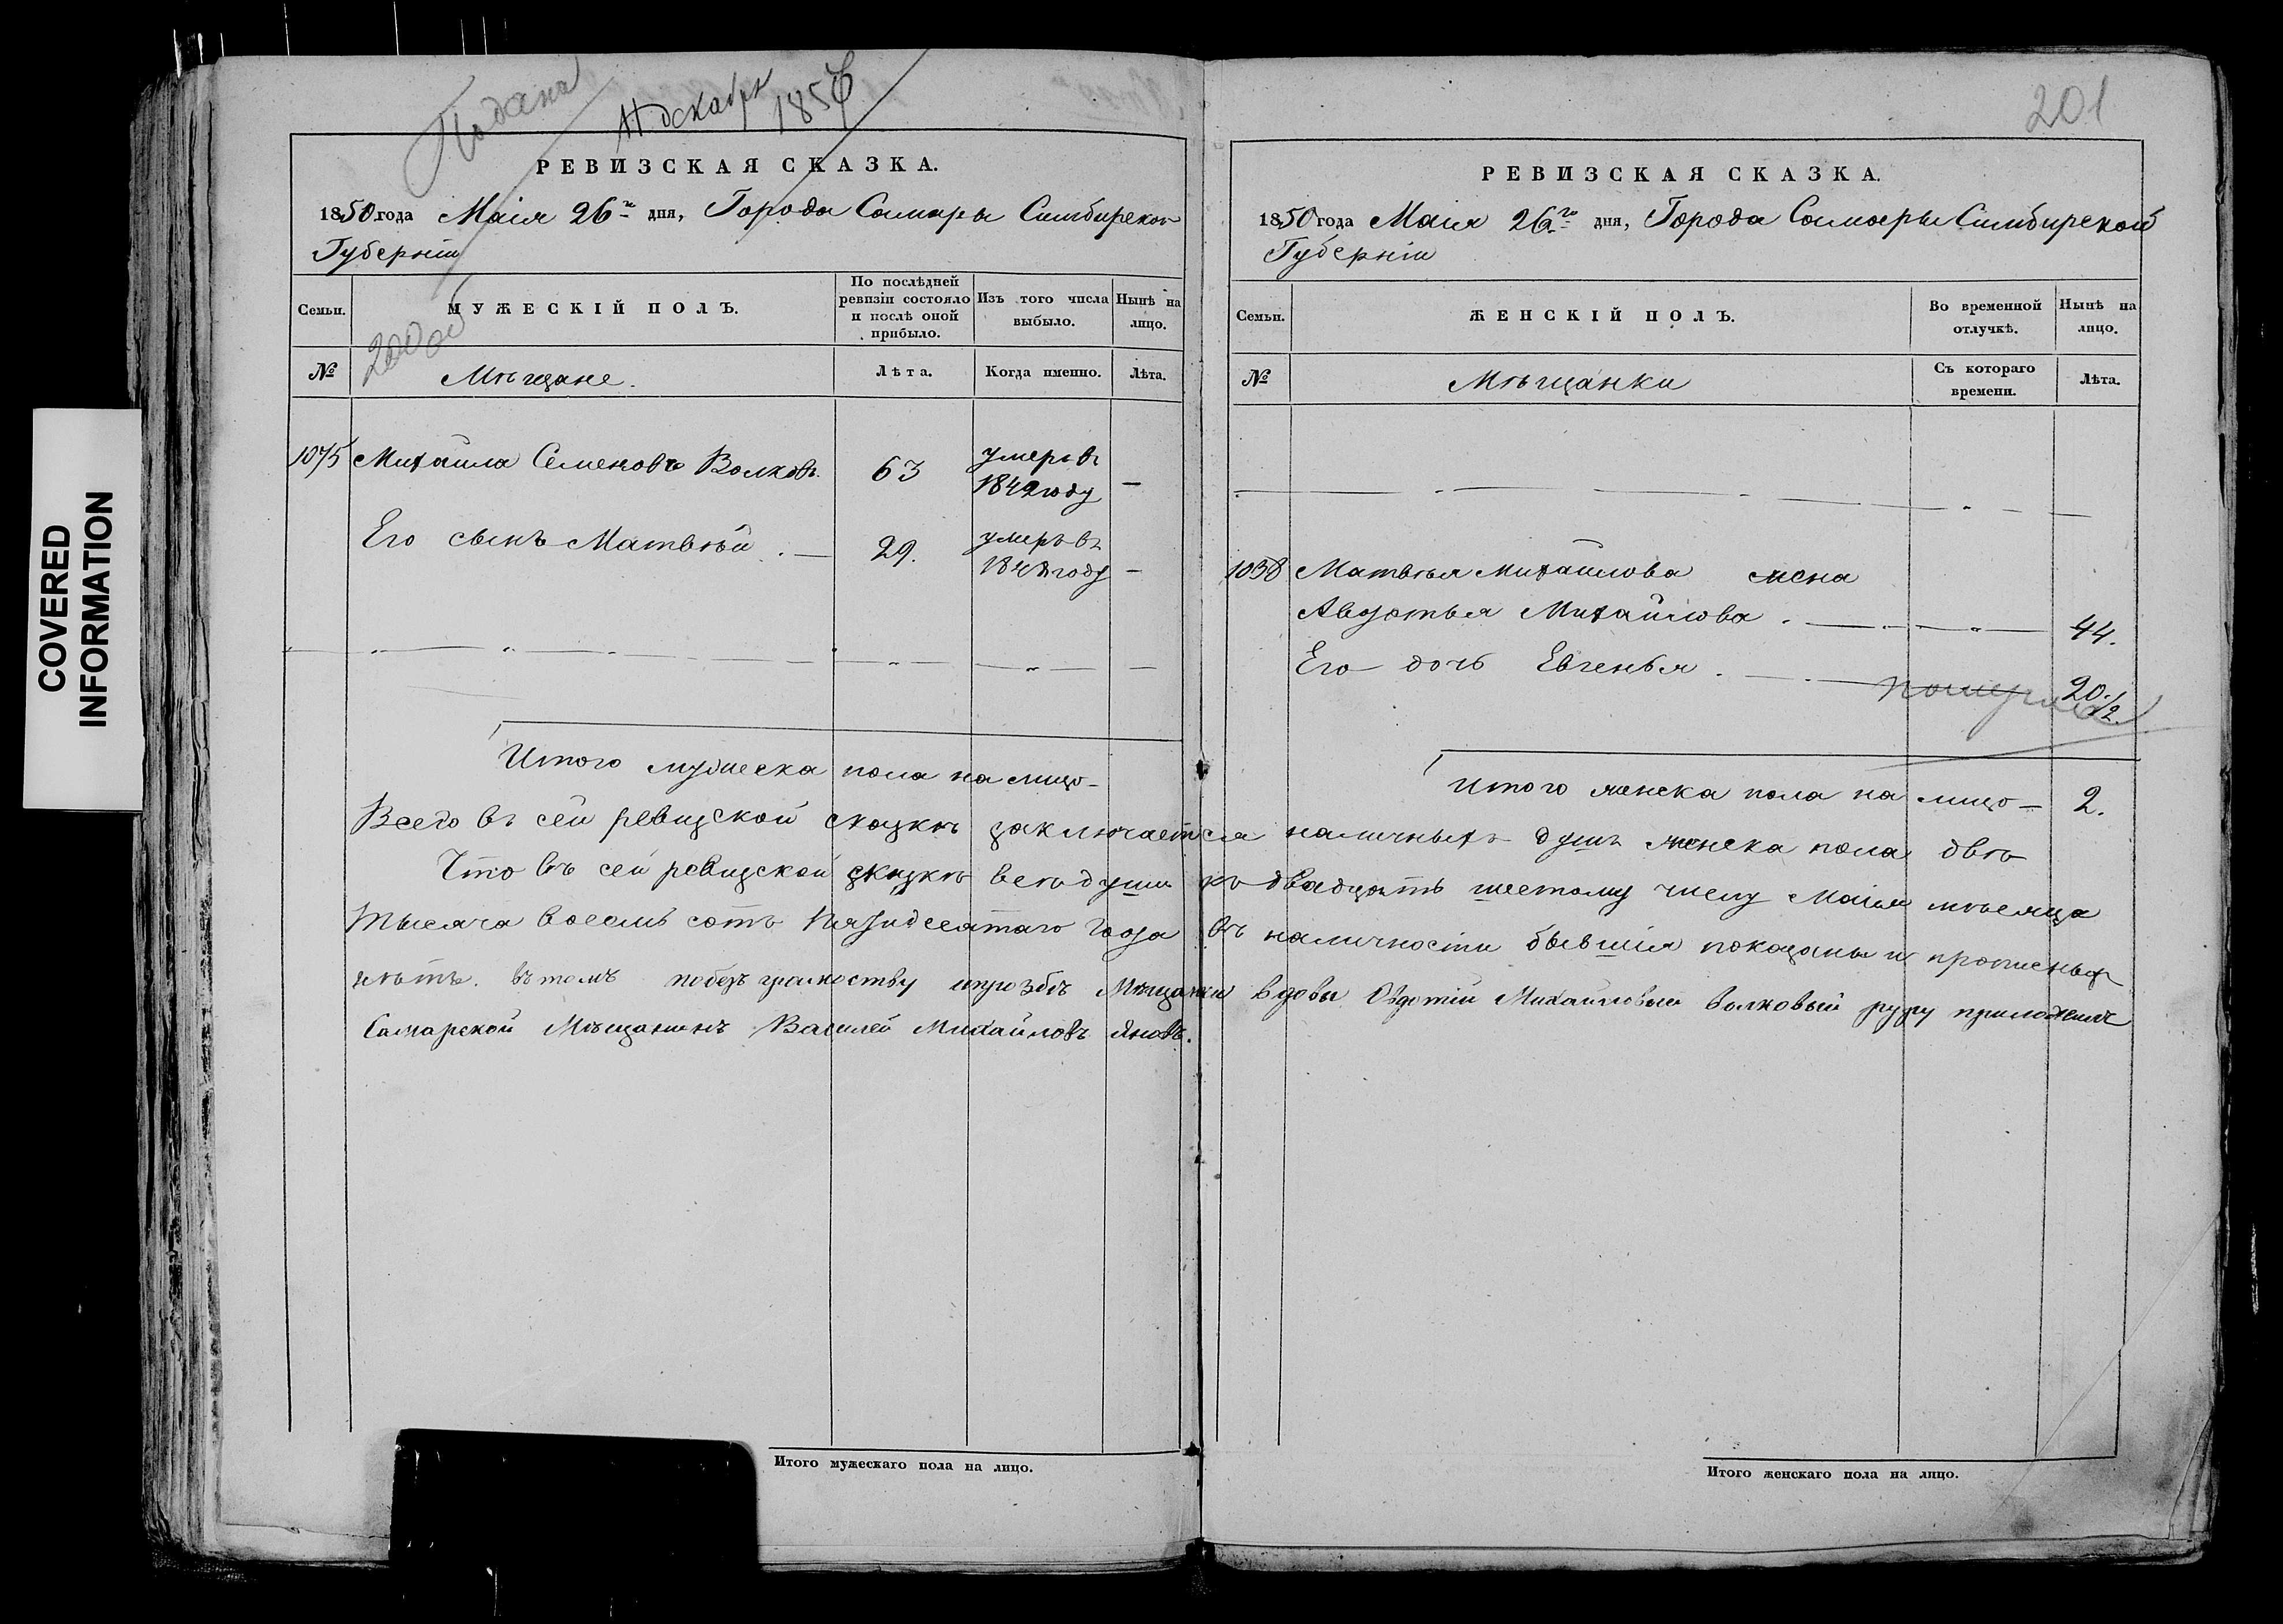 COVERED
INFORMATION
Подана
11 декабря
1857
РЕВИЗСКАЯ СКАЗКА.
1850 года Маія 26го дня, Города Самары Симбирской
Губерніи
Семьи. МУЖЕСКІЙ ПОЛЪ. По послѣдней ревизіи состояло и послѣ оной прибыло. Изъ того числа выбыло. Нынѣ на лицо.
№ Мѣщане. Лѣта. Когда именно. Лѣта.
1075 Михайла Семеновъ Волковъ. 63 умеръ въ
году —
Его сынъ Матвѣй . — 29. умеръ въ
году —
Итого мужеска пола на лицо —
201
РЕВИЗСКАЯ СКАЗКА.
1850 года Маія 26го дня, Города Самары Симбирской
Губерніи
Семьи. ЖЕНСКІЙ ПОЛЪ. Во временной отлучкѣ. Нынѣ на лицо.
№ Мѣщанки Съ котораго времени. Лѣта.
1058 Матвѣя Михайлова жена
Авдотья Михайлова . — 44.
Его дочь Евгенья . — 20 1/2.
померла
Итого женска пола на лицо — 2.
Всего въ сей ревизской сказкѣ заключается наличныхъ душъ женска пола двѣ
Что въ сей ревизской сказкѣ всѣ души къ двадцать шестому числу Маія мѣсяца
тысяча восемь сотъ пятидесятаго года въ наличности бывшія показаны и прописныхъ
нѣтъ. въ томъ побезграмоству ипрозбѣ Мѣщанки вдовы Овдотіи Михайловый Волковый руку приложилъ
Самарской Мѣщанинъ Василей Михайловъ
Итого мужескаго пола на лицо.
Итого женскаго пола на лицо.